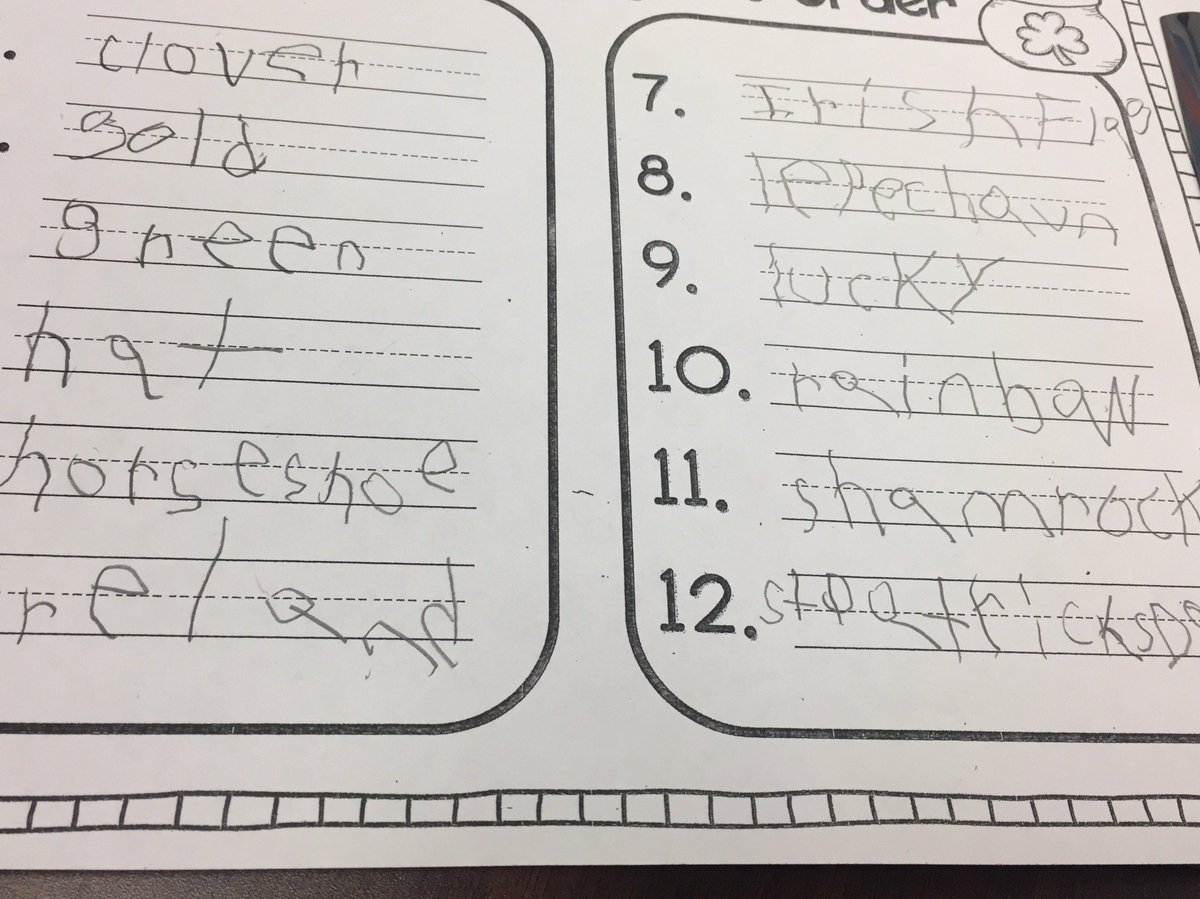 Order
clover
gold
green
hat
horseshoe
reland
7. Irish Flag
8. lepechaun
9. lucky
10. rainbow
11. shamrock
12. st patricks D